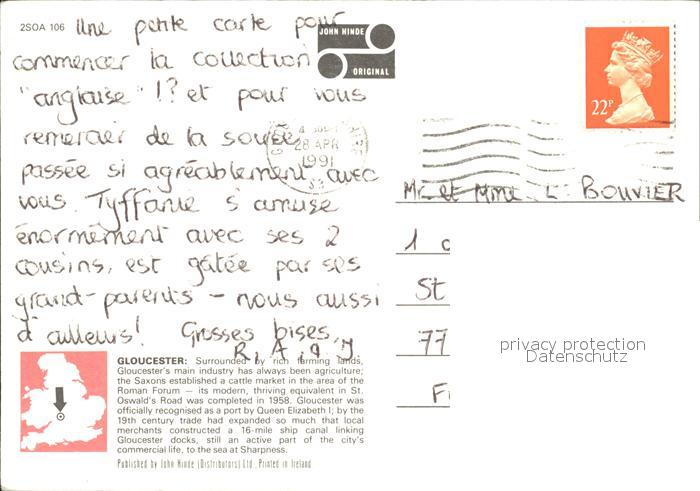 2SOA 106
Une petite carte pour
commencer la collection
"anglaise" !? et pour vous
remercier de la soirée
passée si agréablement avec
vous. Tyffanie s'amuse
énormément avec ses 2
cousins, est gâtée par ses
grand-parents - nous aussi
d'ailleurs! Grosses bises,
JOHN HINDE
ORIGINAL
28 APR
1991
22P
Mr et Mme L BOUVIER
1
St
77
privacy protection
Datenschutz
GLOUCESTER: Surrounded by rich farming lands,
Gloucester's main industry has always been agriculture;
the Saxons established a cattle market in the area of the
Roman Forum — its modern, thriving equivalent in St.
Oswald's Road was completed in 1958. Gloucester was
officially recognised as a port by Queen Elizabeth I; by the
19th century trade had expanded so much that local
merchants constructed a 16-mile ship canal linking
Gloucester docks, still an active part of the city's
commercial life, to the sea at Sharpness.
Published by John Hinde (Distributors) Ltd., Printed in Ireland